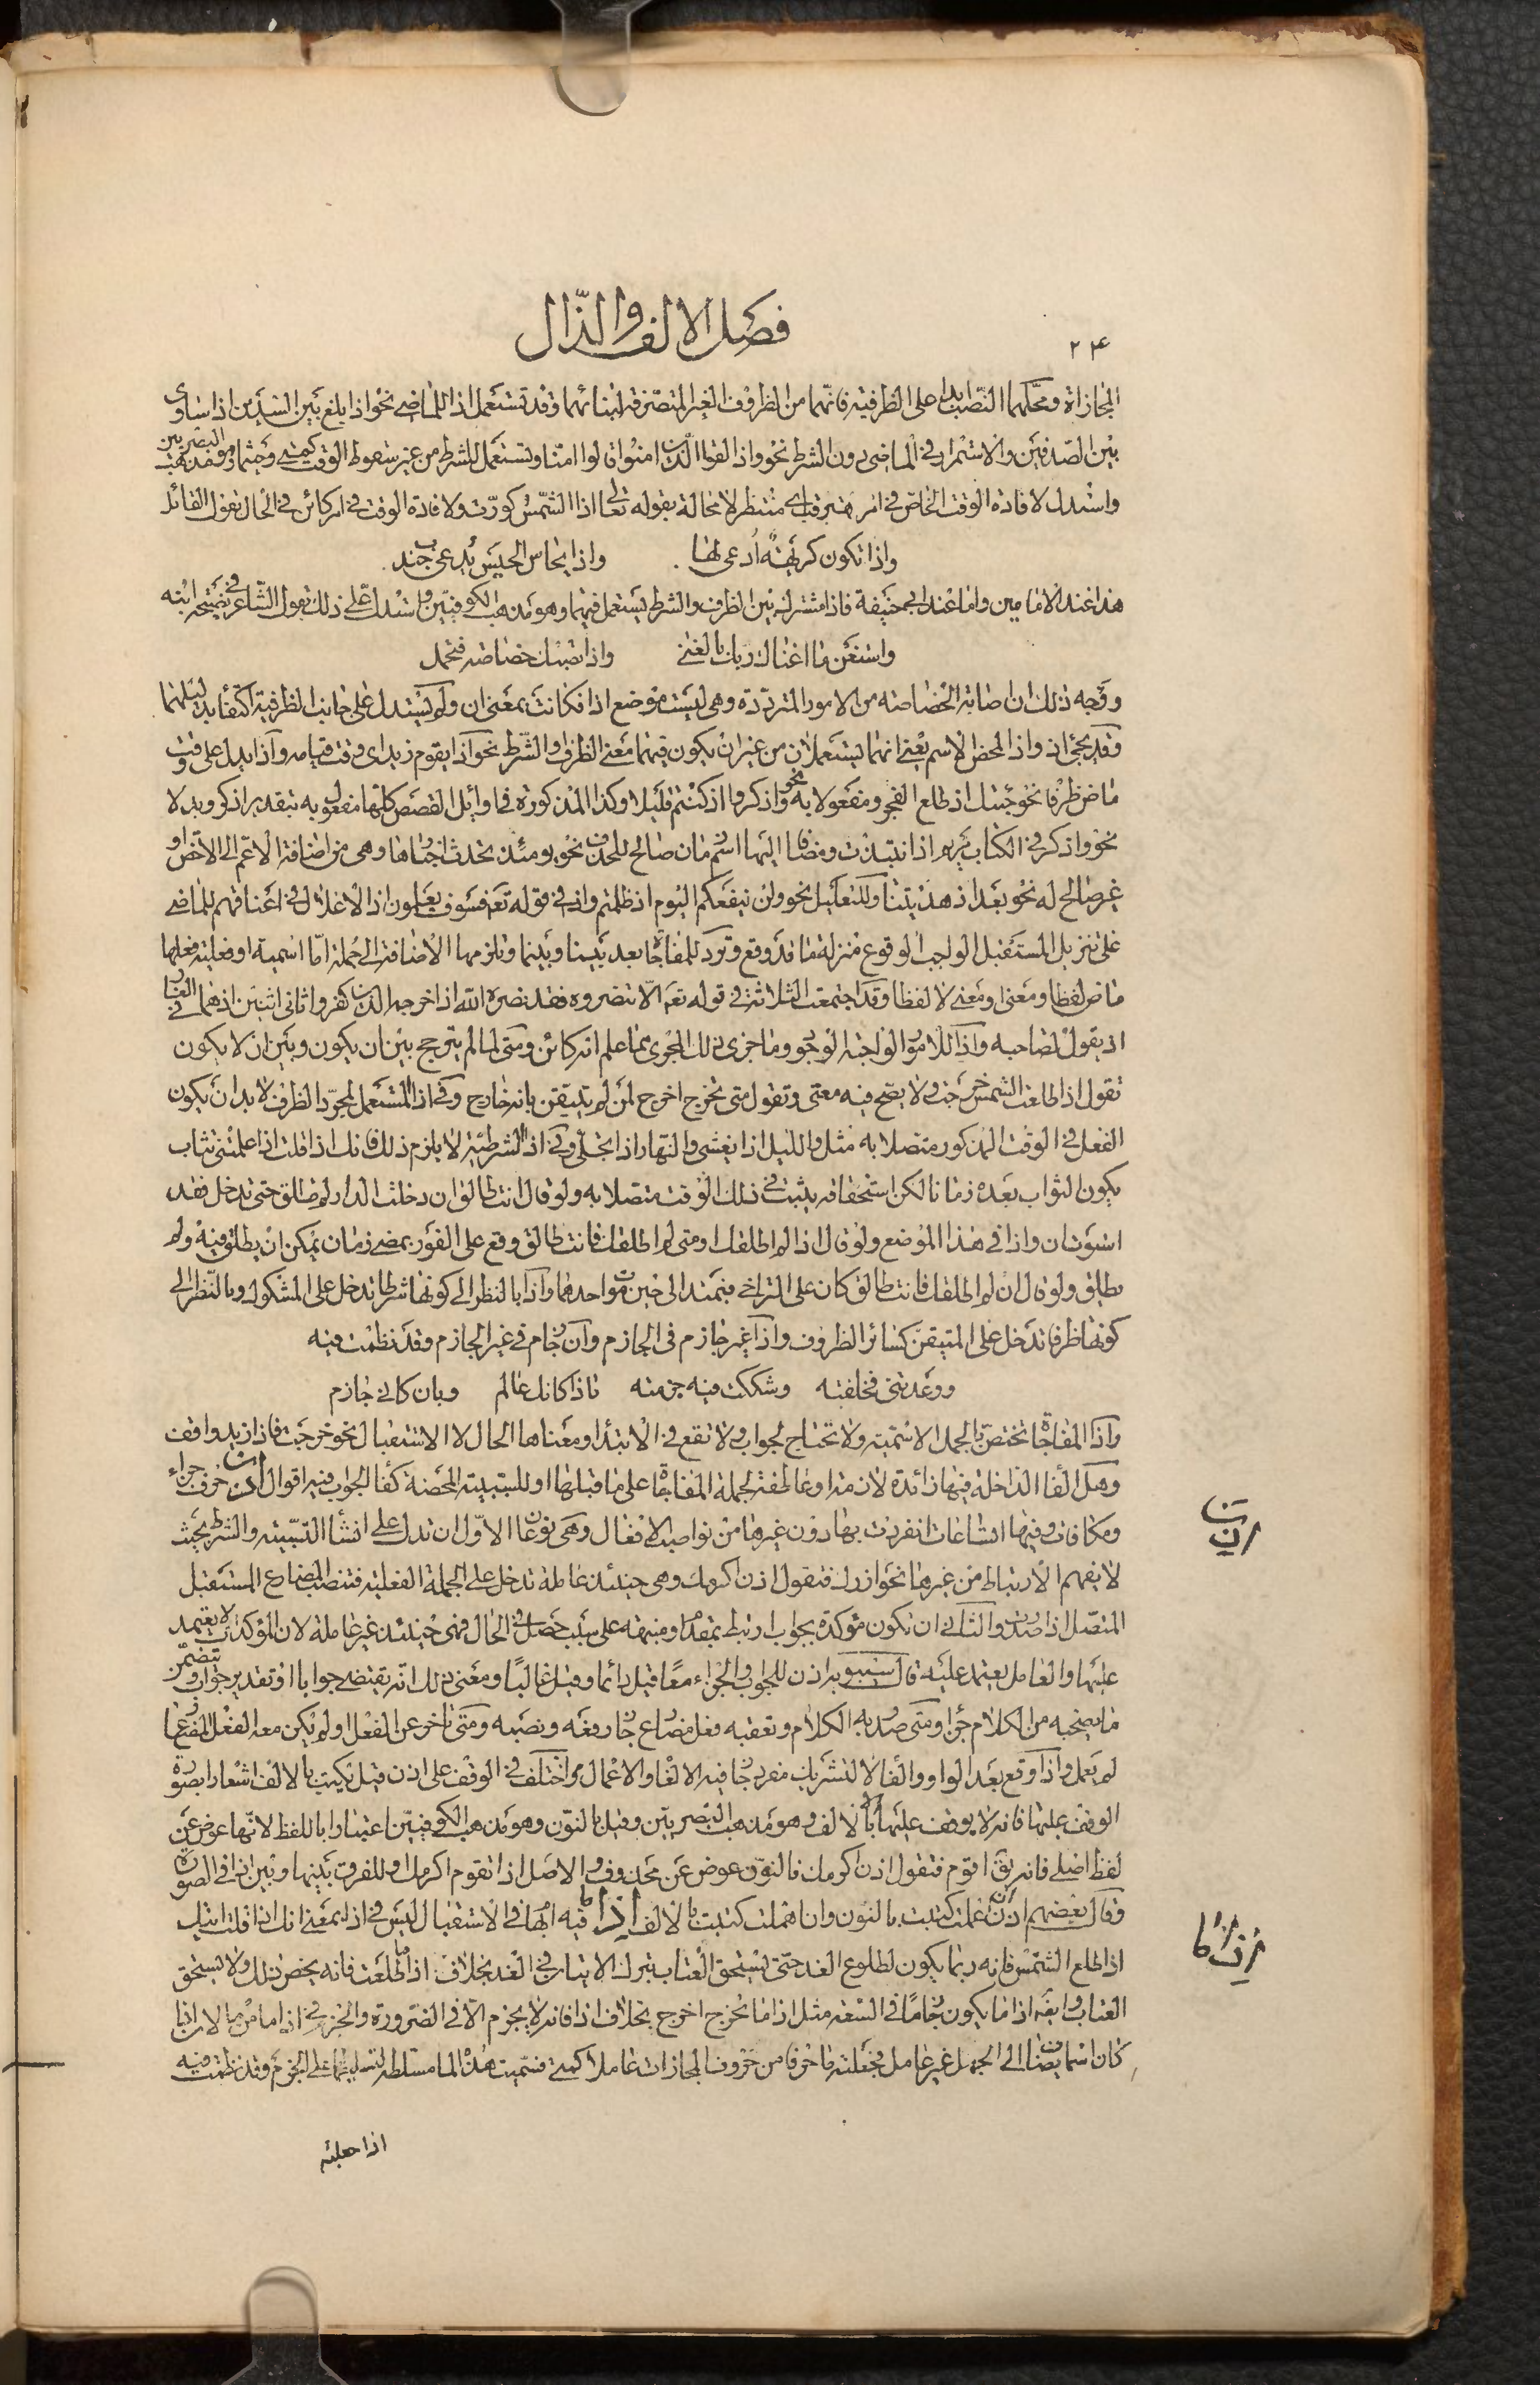 فصل الالف والذال
٢٤
المجازاة ومحلهما النصب ابدا على الظرفية فانهما من الظروف الغير المتصرفة لبنائهما وقد تستعمل اذا للماضي نحو اذا بلغ بين السدين اذا ساوى
بين الصدفين والاستمرار في الماضي دون الشرط نحو واذا لقوا الذين امنوا قالوا امنا وتستعمل للشرط من غير سقوط الوقت كمتى وحيثما وهو مذهب البصريين
واستدل لافادة الوقت الخاص في امر مترقب اي منتظر لا محالة بقوله تعالى اذا الشمس كورت ولافادة الوقت في امر كائن في الحال بقول القائل
واذا تكون كريهة ادعى لها واذا يحاس الحيس يدعى جندب
هذا عند الامامين واما عند ابي حنيفة فاذا مشترك بين الظرف والشرط يستعمل فيهما وهو مذهب الكوفيين واستدل على ذلك بقول الشاعر في نصيحة ابنه
واستغن ما اغناك ربك بالغنى واذا تصبك خصاصة فتجمل
ووجه ذلك ان اصابة الخصاصة من الامور المترددة وهي ليست موضع اذا فكانت بمعنى ان ولم يستدل على جانب الظرفية اكتفاء بدليلهما
وقد يجئ اذ واذا لمحض الاسم يعني انهما يستعملان من غير ان يكون فيهما معنى الظرف والشرط نحو اذا يقوم زيد اي وقت قيامه واذ ا يدل على وقت
ماض ظرفا نحو جئتك اذ طلع الفجر ومفعولا به نحو واذكروا اذ كنتم قليلا وكذا المذكورة في اوائل القصص كلها مفعول به بتقدير اذكر وبدلا
نحو واذكر في الكتاب مريم اذ انتبذت ومضافا اليها اسم زمان صالح للحذف نحو يومئذ تحدث اخبارها وهي من اضافة الاعم الى الاخص او
غير صالح له نحو بعد اذ هديتنا وللتعليل نحو ولن ينفعكم اليوم اذ ظلمتم واذ في قوله تعه فسوف يعلمون اذ الاغلال في اعناقهم للماضي
على تنزيل المستقبل الواجب الوقوع منزلة ما قد وقع وترد للمفاجاة بعد بينا وبينما وتلزمها الاضافة الى جملة اما اسمية او فعلية فعلها
ماض لفظا ومعنى او معنى لا لفظا وقد اجتمعت الثلاثة في قوله تعه الا تنصروه فقد نصره الله اذ اخرجه الذين كفروا ثاني اثنين اذ هما في الغار
اذ يقول لصاحبه واذا للامور الواجبة الوجود وما جرى ذلك المجرى مما علم انه كائن ومتى لما لم يترجح بين ان يكون وبين ان لا يكون
تقول اذا طلعت الشمس خرجت ولا يصح فيه متى وتقول متى تخرج اخرج لمن لم يتيقن بانه خارج وفي اذا المستعمل لمجرد الظرف لا بد ان يكون
الفعل في الوقت المذكور متصلا به مثل والليل اذا يغشى والنهار اذا تجلى وفي اذا الشرطية لا يلزم ذلك فانك اذا قلت اذا علمتني تثاب
يكون الثواب بعده زمانا لكن استحقاقه يثبت في ذلك الوقت متصلا به ولو قال انت طالق ان دخلت الدار لم تطلق حتى تدخل فقد
استوت ان واذا في هذا الموضع ولو قال اذا لم اطلقك او متى لم اطلقك فانت طالق وقع على الفور بمضي زمان يمكن ان يطلق فيه ولم
يطلق ولو قال ان لم اطلقك فانت طالق كان على التراخي فيمتد الى حين موت احدهما واذا بالنظر الى كونها شرطا تدخل على المشكوك وبالنظر الى
كونها ظرفا تدخل على المتيقن كسائر الظروف واذا غير جازم في الجازم وان جازم في غير الجازم وقد نظمت فيه
ووعدتني فخلفته وشككت فيه جزمته فاذا كانك عالم وبان كاني جازم
واذا المفاجاة تختص بالجمل الاسمية ولا تحتاج لجواب ولا تقع في الابتداء ومعناها الحال لا الاستقبال نحو خرجت فاذا زيد واقف
وهل الفا الداخلة فيها زائدة لازمة او عاطفة لجملة المفاجاة على ما قبلها او للسببية المحضة كفا الجواب فيه اقوال اذن حرف جزاء
ومكافات وفيها اتساعات انفردت بها دون غيرها من نواصب الافعال وهي نوعان الاول ان تدل على انشا السببية والشرط بحيث
لا يفهم الارتباط من غيرها نحو ازورك فتقول اذن اكرمك وهي حينئذ عاملة تدخل على الجملة الفعلية فتنصب المضارع المستقبل
المتصل اذا صدرت والثاني ان تكون مؤكدة بجواب ارتبط بمقدم او منبهة على سبب حصل في الحال فهي حينئذ غير عاملة لان المؤكدات لا يعتمد
عليها والعامل يعتمد عليه قال سيبويه اذن للجواب والجزاء معا قيل دائما وقيل غالبا ومعنى ذلك انه يقتضي جوابا او تقدير جواب ويتضمن
ما يصحبه من الكلام جزاء ومتى صدر به الكلام وتعقبه فعل مضارع جاز رفعه ونصبه ومتى تاخر عن الفعل او لم يكن معه الفعل المضارع
لم يعمل واذا وقع بعد الواو والفا لا لتشريك مفرد جاز فيه الالغاء والاعمال واختلف في الوقف على اذن قيل يكتب بالالف اشعارا بصورة
الوقف عليها فانه لا يوقف عليها الا بالالف وهو مذهب البصريين وقيل بالنون وهو مذهب الكوفيين اعتبارا باللفظ لانها عوض عن
لفظ اصلي فانه يق اقوم فتقول اذن اكرمك فالنون عوض عن محذوف والاصل اذا تقوم اكرمك او للفرق بينها وبين اذا في الصورة
وقال بعضهم اذن ان عملت كتبت بالنون وان اهملت كتبت بالالف اذا ما فيه ابهام في الاستقبال ليس في اذا بمعنى انك اذا قلت اتيك
اذا طلع الشمس فانه ربما يكون لطلوع الغد حتى يستحق العتاب بترك الاتيان في الغد بخلاف اذا ما طلعت فانه يخص ذلك ولا يستحق
العتاب وايضه اذا ما يكون جازما في السعة مثل اذا ما تخرج اخرج بخلاف اذا فانه لا يجزم الا في الضرورة والجزم في اذا ما من ما لان اذا
كان اسما يضاف الى الجمل غير عامل فجعلته ما حرفا من حروف المجازات عاملا كمتى فسميت هذه الما مسلطة لتسليطها على الجزم وقد نظمت فيه
اذن
اذا ما
اذا حليته